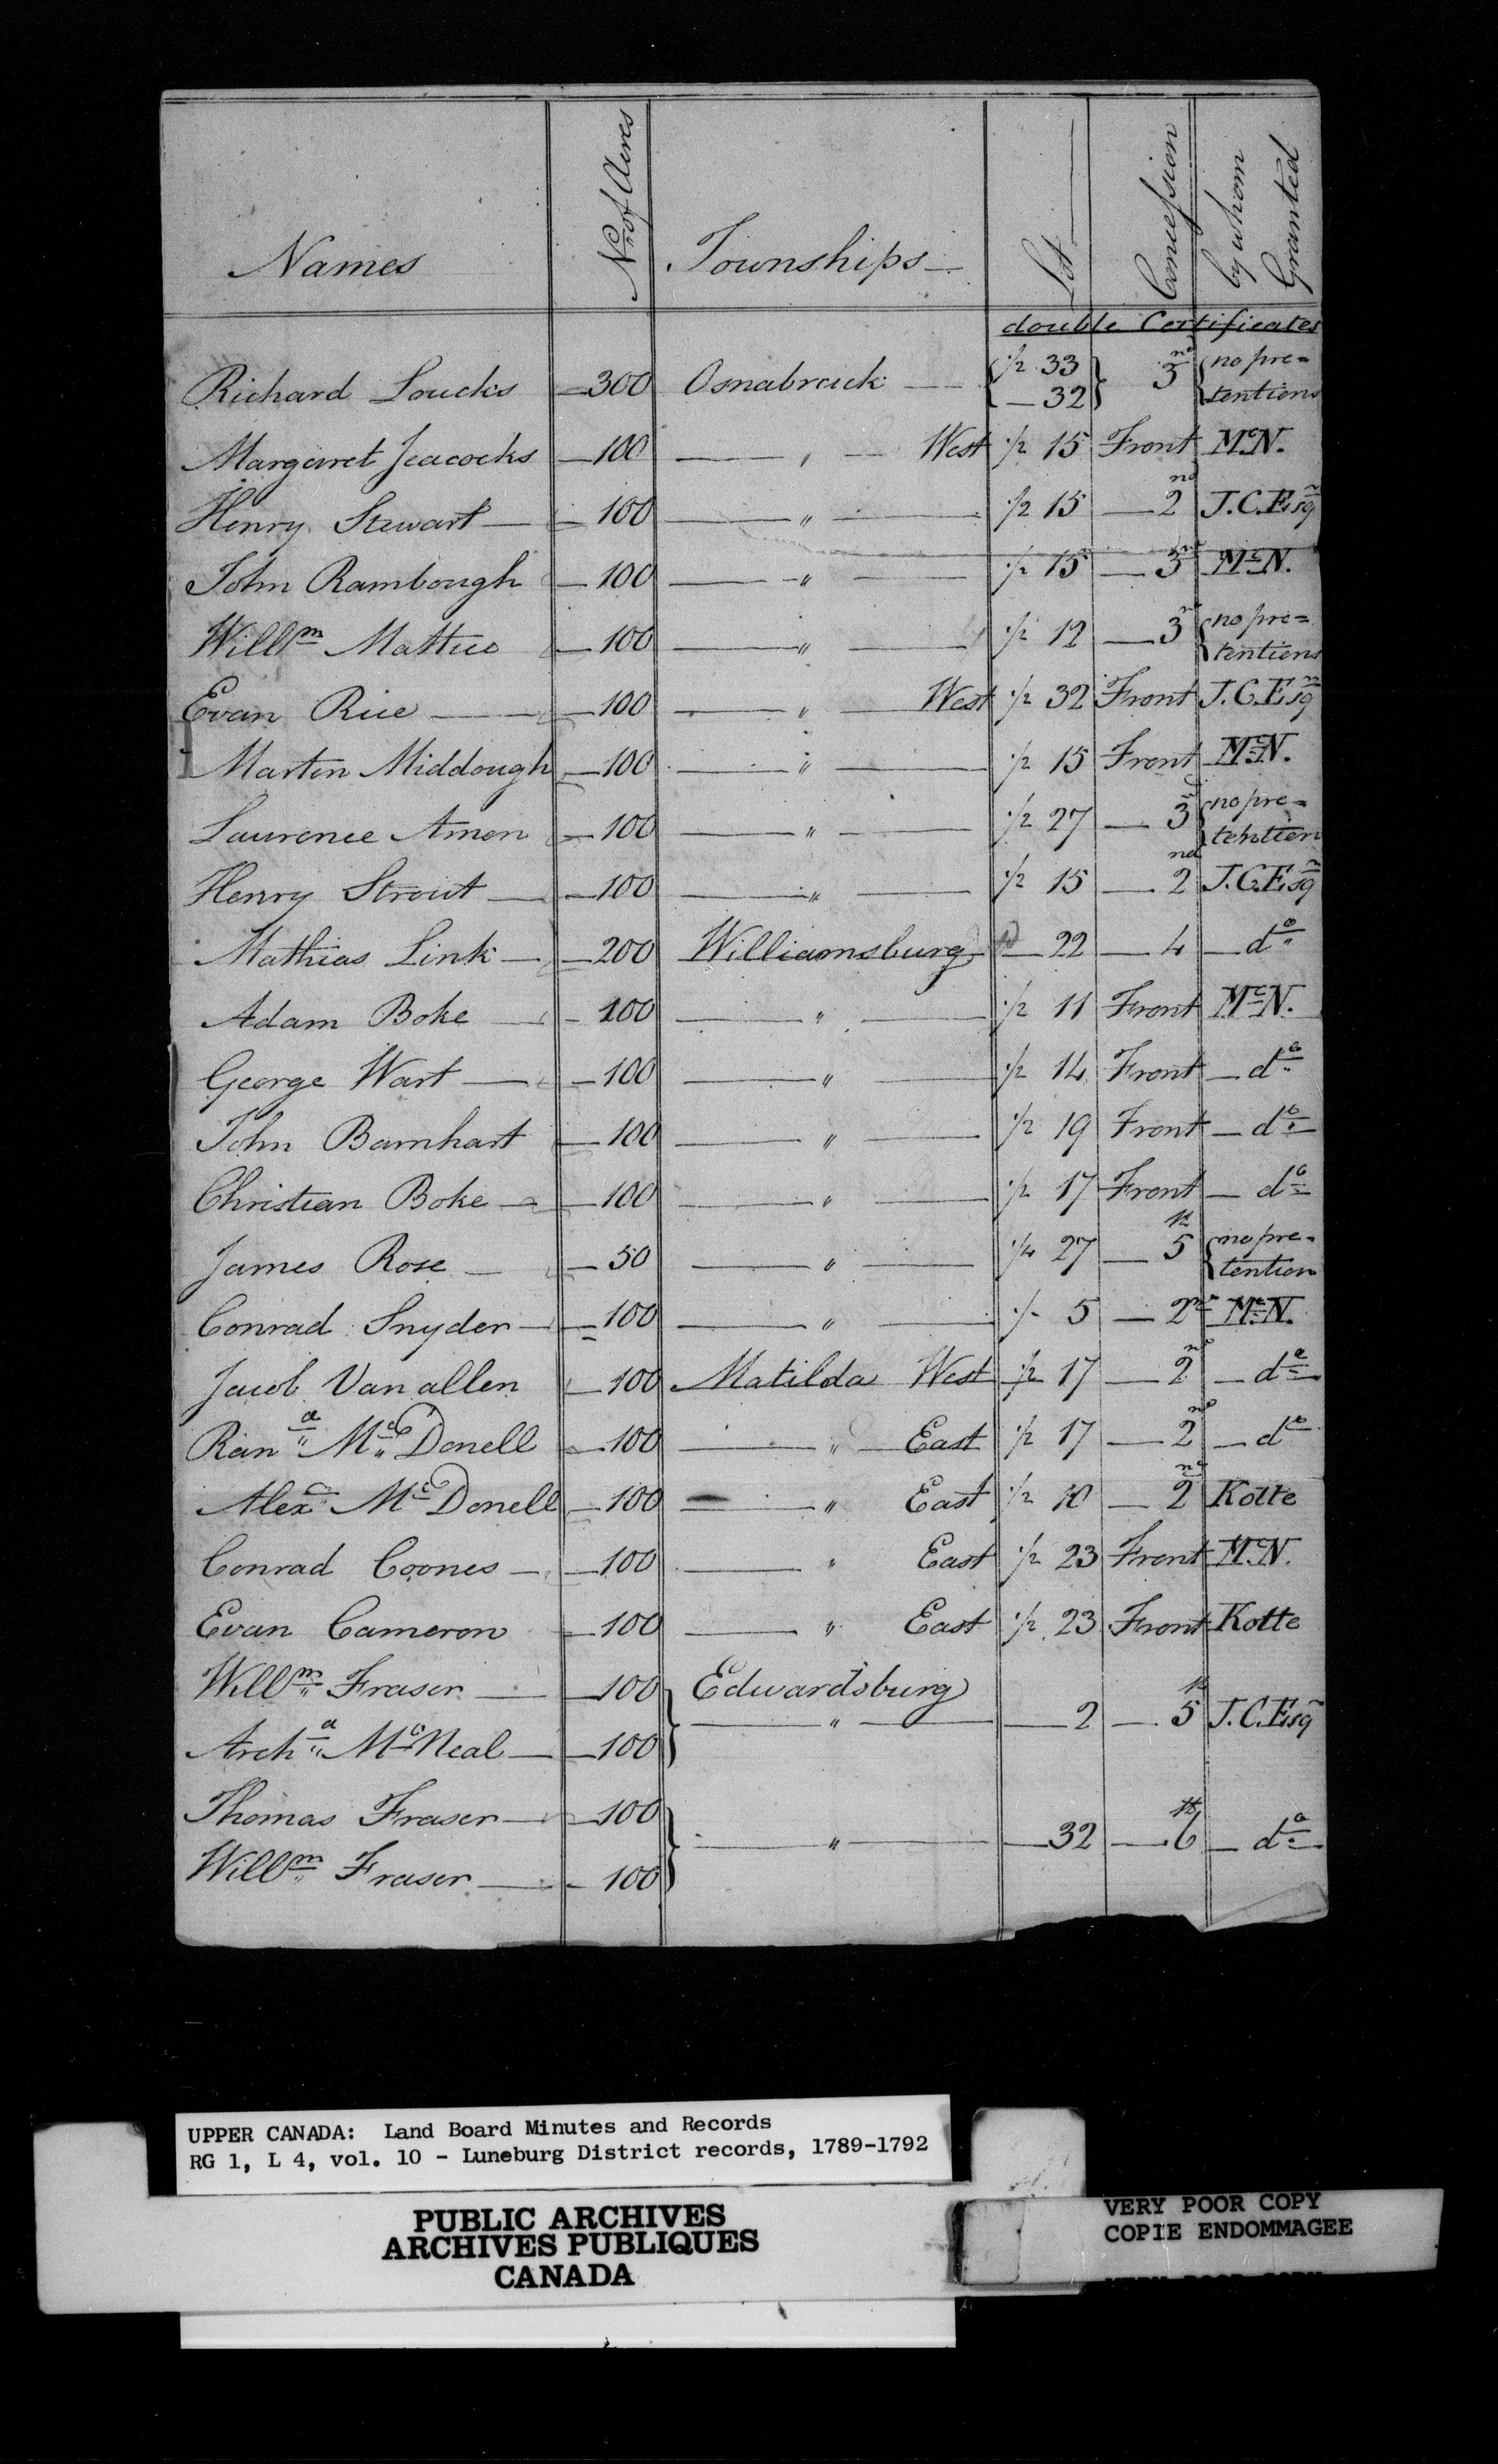 Names Nr. of Acres Townships Lot Concession by whom Granted
double Certificates
Richard Loucks 300 Osnabruck { 1/2 33 — 32 } 3rd { no pre= tentions
Margaret Jeacocks 100 " West 1/2 15 Front McN.
Henry Stewart 100 " 1/2 15 2nd J.C. Esqr
John Rambough 100 " 1/2 15 3rd McN.
Willm 100 " 1/2 12 3rd { no pre= tentions
Evan Rice 100 " West 1/2 32 Front J.C. Esqr
Marten Middough 100 " 1/2 15 Front McN.
Laurence Amen 100 " 1/2 27 3rd { no pre= tention
Henry Strout 100 " 1/2 15 2nd J.C. Esqr
Mathias Link 200 Williamsburg 22 4 do
Adam Boke 100 " 1/2 11 Front McN.
George Wart 100 " 1/2 14 Front do
John Barnhart 100 " 1/2 19 Front do
Christian Boke 100 " 1/2 17 Front do
James Rose 50 " 1/4 27 5th { no pre= tention
Conrad Snyder 100 " 5 2nd McN.
Jacob Van allen 100 Matilda West 1/2 17 2nd do
Rand McDonell 100 " East 1/2 17 2nd do
Alexr McDonell 100 " East 1/2 10 2nd Kotte
Conrad Coones 100 " East 1/2 23 Front McN.
Evan Cameron 100 " East 1/2 23 Front Kotte
Willm Fraser 100 } Edwardsburg
" 2 5th J.C. Esqr
Archd McNeal 100 }
Thomas Fraser 100 }
" 32 6th do
Willm Fraser 100 }
UPPER CANADA: Land Board Minutes and Records
RG 1, L 4, vol. 10 - Luneburg District records, 1789-1792
PUBLIC ARCHIVES
ARCHIVES PUBLIQUES
CANADA
VERY POOR COPY
COPIE ENDOMMAGEE
VERY POOR COPY